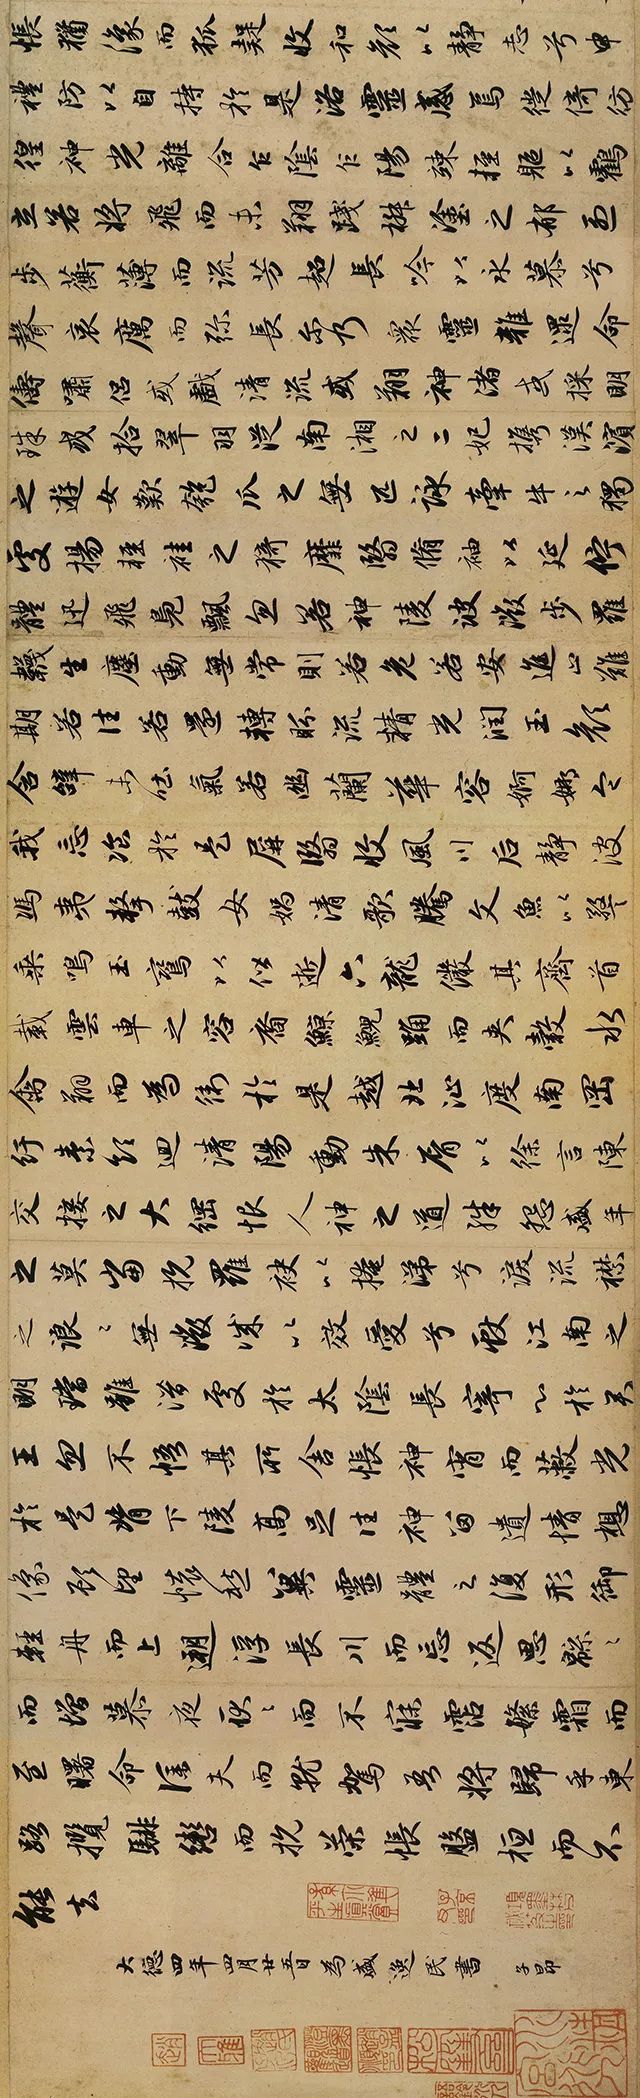 悵猶豫而狐疑收和顏以靜志兮申
禮防以自持於是洛靈感焉徙倚彷
徨神光離合乍陰乍陽竦輕軀以鶴
立若將飛而未翔踐椒塗之郁烈
步蘅薄而流芳超長吟以永慕兮
聲哀厲而弥長爾乃眾靈雜遝命
儔嘯侶或戲清流或翔神渚或採明
珠或拾翠羽從南湘之二妃攜漢濱
之遊女歎匏瓜之無匹詠牽牛之獨
處揚輕袿之猗靡翳脩袖以延佇
體迅飛鳧飄忽若神陵波微步羅
襪生塵動無常則若危若安進止難
期若往若還轉眄流精光潤玉顏
含辭未吐氣若幽蘭華容婀娜令
我忘飡於是屏翳收風川后靜波
馮夷擊鼓女媧清歌騰文魚以警
乘鳴玉鸞以偕逝六龍儼其齊首
載雲車之容裔鯨鯢踊而夾轂水
禽翔而為衛於是越北沚度南岡
紆素領迴清陽動朱脣以徐言陳
交接之大綱恨人神之道殊怨盛年
之莫當抗羅袂以掩涕兮淚流襟
之浪〻無微誠以效愛兮獻江南之
明璫雖潛處於太陰長寄心於君
王忽不悟其所舍悵神宵而蔽光
於是背下陵高足往神留遺情想
像顧望懷愁冀靈體之復形御
輕舟而上遡浮長川而忘返思緜〻
而增慕夜耿〻而不寐霑繁霜而
至曙命僕夫而就駕吾將歸乎東
路攬騑轡而抗策悵盤桓而不
能去
大德四年四月廿五日為盛逸民書 子昂